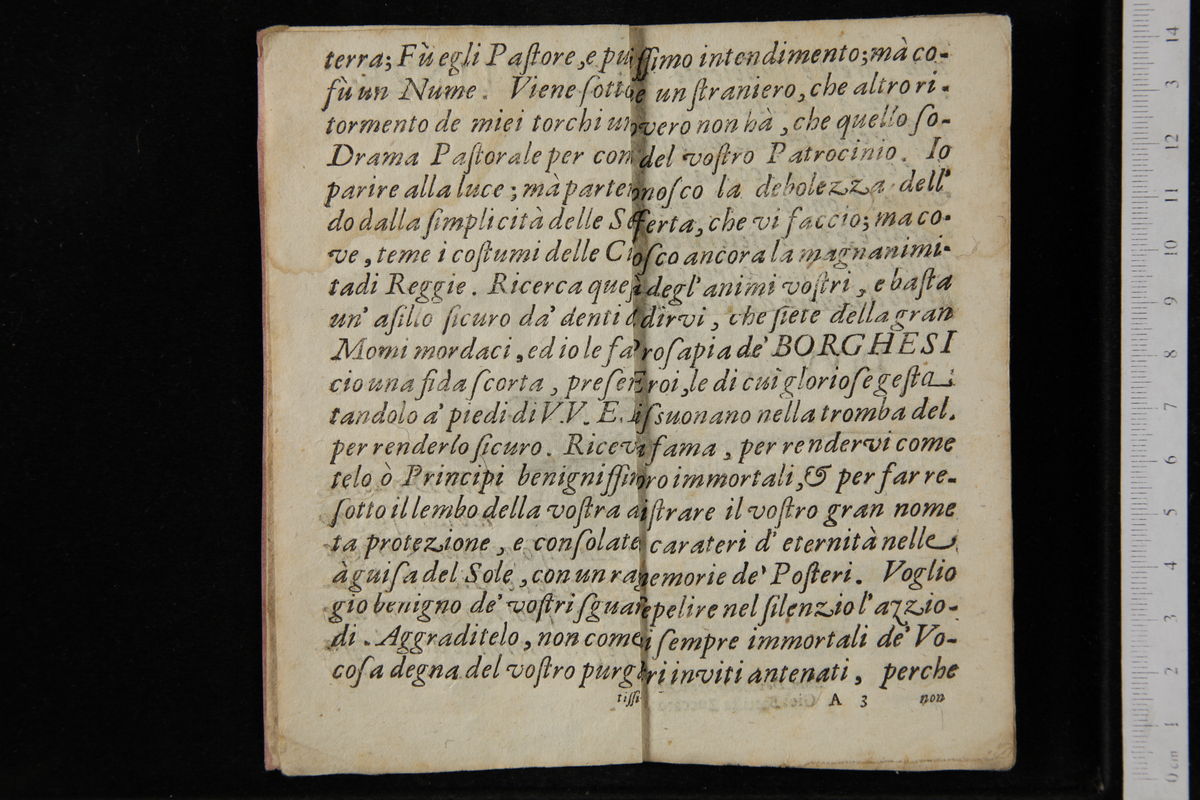 terra; Fù egli Pastore, e pui
fù un Nume. Viene sotto
tormento de miei torchi un
Drama Pastorale per com
parire alla luce; mà parten
do dalla simplicità delle Se
ve, teme i costumi delle Ci
tadi Reggie. Ricerca ques
un' asillo sicuro da' denti d
Momi mordaci, ed io le fa
cio una fida scorta, presen
tandolo a' piedi di V.V. E.
per renderlo sicuro. Ricevi
telo ò Principi benignissim
sotto il lembo della vostra a
ta protezione, e consolate
à guisa del Sole, con un rag
gio benigno de' vostri sguar
di. Aggraditelo, non come
cosa degna del vostro purg
tissi-
ssimo intendimento; mà co-
e un straniero, che altro ri-
vero non hà, che quello so-
del vostro Patrocinio. Io
nosco la debolezza dell'
fferta, che vi faccio; ma co-
osco ancora la magnanimi-
à degl' animi vostri, e basta
dirvi, che siete della gran
rosapia de' BORGHESI
Eroi, le di cui gloriose gesta
issuonano nella tromba del.
fama, per rendervi come
ro immortali, & per far re-
istrare il vostro gran nome
carateri d' eternità nelle
memorie de' Posteri. Voglio
epelire nel silenzio l' azzio-
i sempre immortali de' Vo-
ri inviti antenati, perche
A 3 non
0 cm 1 2 3 4 5 6 7 8 9 10 11 12 3 14